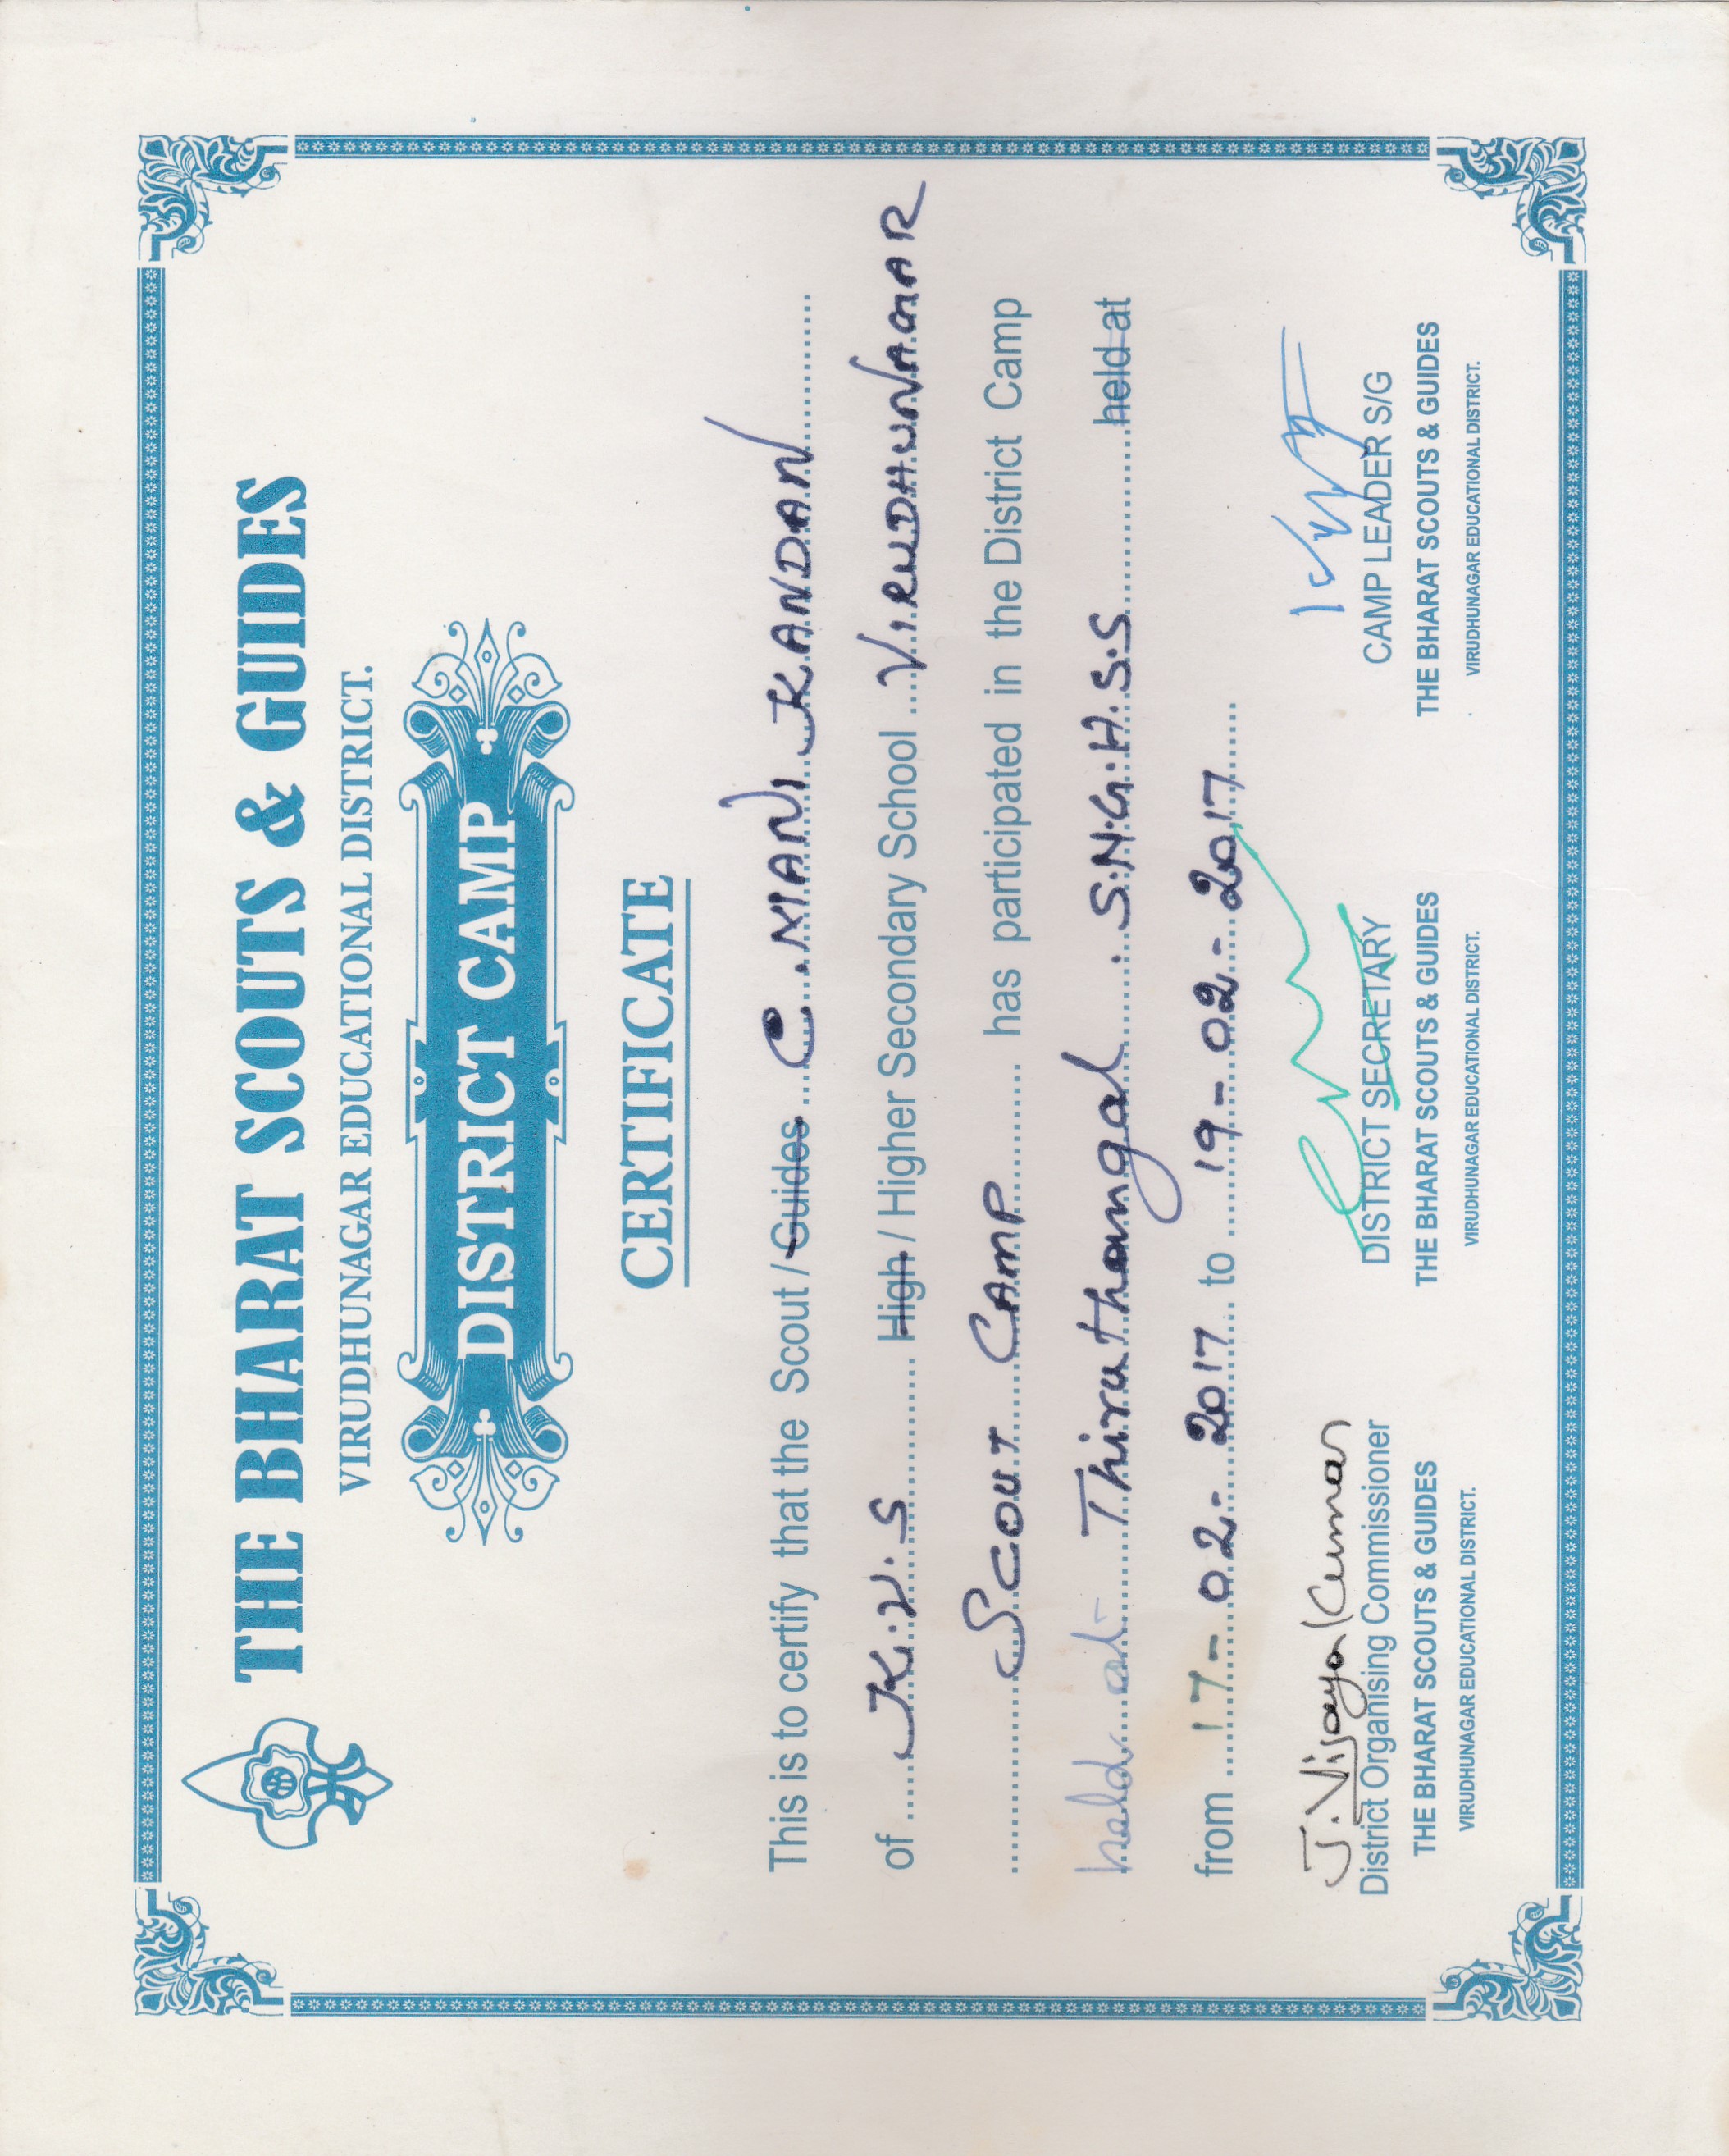 THE BHARAT SCOUTS & GUIDES
VIRUDHUNAGAR EDUCATIONAL DISTRICT.
DISTRICT CAMP
CERTIFICATE
This is to certify that the Scout / Guides C. MANI KANDAN
of K.V.S High / Higher Secondary School VIRUDHUNAGAR
Scout Camp has participated in the District Camp
held at Thiruthangal. S.N.G.H.S.S held at
from 17-02-2017 to 19-02-2017
J. Vijaya Kumar
District Organising Commissioner DISTRICT SECRETARY CAMP LEADER S/G
THE BHARAT SCOUTS & GUIDES THE BHARAT SCOUTS & GUIDES THE BHARAT SCOUTS & GUIDES
VIRUDHUNAGAR EDUCATIONAL DISTRICT. VIRUDHUNAGAR EDUCATIONAL DISTRICT. VIRUDHUNAGAR EDUCATIONAL DISTRICT.